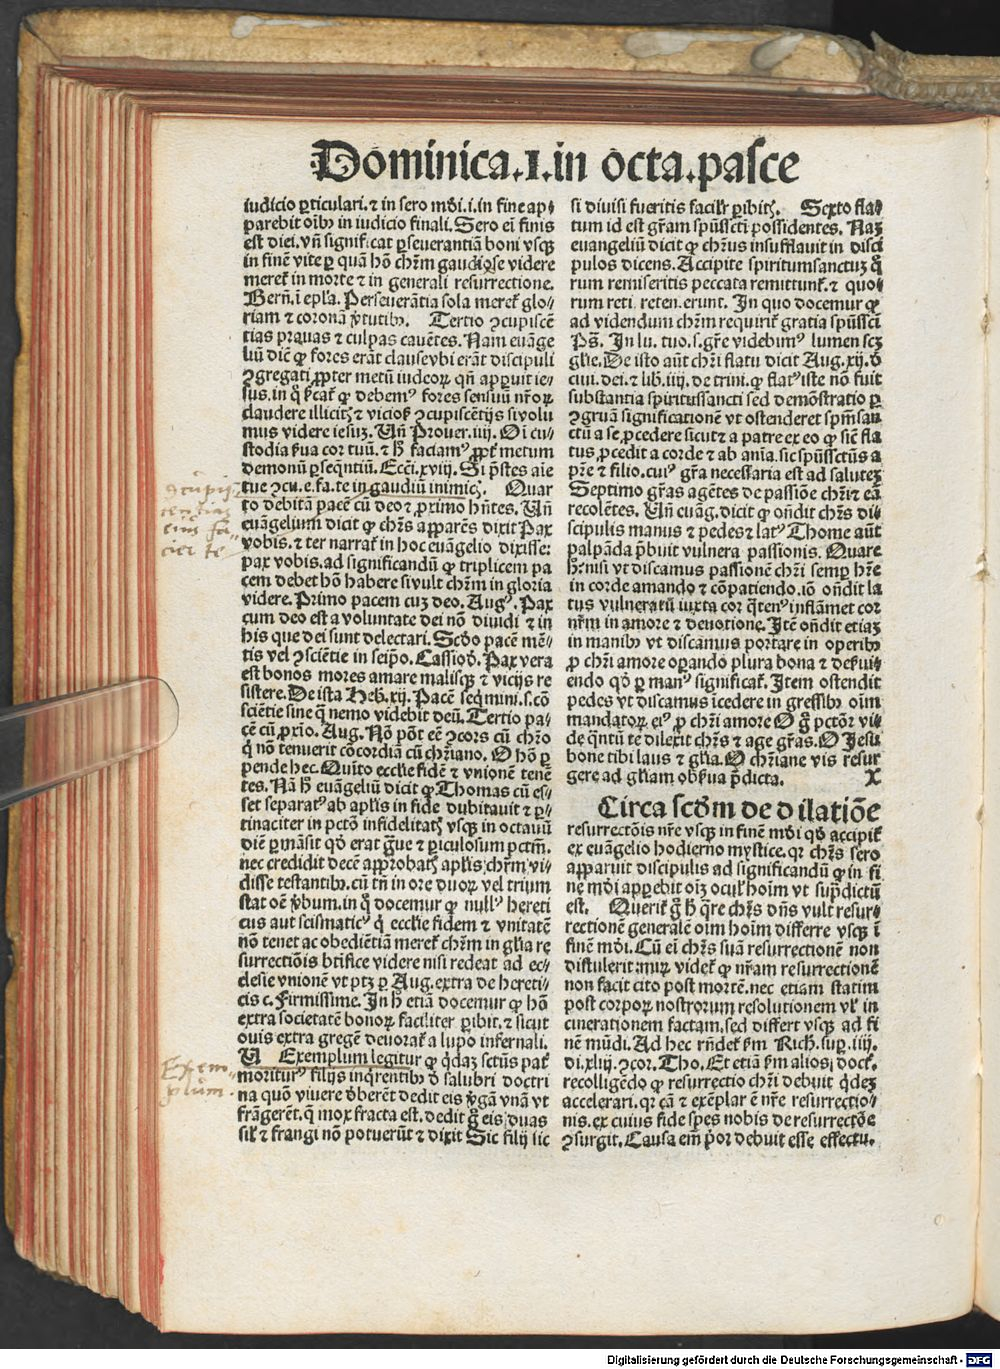 Dominica.I.in octa.pasce
iudicio ꝑticulari.⁊ in sero mōi.i.in fine ap⸗
parebit oībꝰ in iudicio finali. Sero eī finis
est diei. vñ significat ꝑseuerantiā boni vsqꝫ
in finē vite ꝑ quā hō chrm̄ gaudiose videre
meret᷑ in morte ⁊ in generali resurrectione.
Bern̄.ī epl̄a. Perseuerātia sola meret᷑ glo⸗
riam ⁊ coronā v̓tutibꝰ. Tertio ꝯcupiscē
tias prauas ⁊ culpas cauētes. Nam euāge
liū dic̄ ꝙ fores erāt clause vbi erāt discipuli
ꝯgregati ꝓpter metū iudeoꝝ qñ apꝑuit ie⸗
sus. in q̊ d̓cat᷑ ꝙ debemꝰ fores sensuū nr̄oꝝ
claudere illicitꝭ ⁊ vicioẜ ꝯcupiscētijs si volu
mus videre iesuꝫ. Vñ Prouer.iiij. Oī cu⸗
stodia ẜua cor tuū. ⁊ h̓ faciamꝰ ꝓpt᷑ metum
demonū ꝑseq̄ntiū. Ecc̄i.xviij. Si p̄stes aīe
tue ꝯcu.e.fa.te in gaudiū inimicꝭ. Quar
to debitā pacē cū deo ⁊ ꝓximo hn̄tes. Vñ
euāgelium dicit ꝙ chr̄s apparēs dixit Pax
vobis.⁊ ter narrat᷑ in hoc euāgelio dixisse:
pax vobis.ad significandū ꝙ triplicem pa
cem debet hō habere si vult chrm̄ in gloria
videre. Primo pacem cuꝫ deo. Augꝰ. Pax
cum deo est a voluntate dei nō diuidi ⁊ in
his que dei sunt delectari. Scdo pacē mē⸗
tis vel ꝯsciētie in seip̄o. Cassiod̓. Pax vera
est bonos mores amare malisqꝫ ⁊ vicijs re
sistere. De ista Heb.xij. Pacē seq̄mini.s.cō
sciētie sine q̄ nemo videbit deū. Tertio pa⸗
cē cū ꝓxīo. Aug. Nō pōt eē ꝯcors cū chr̄o
q̓ nō tenuerit cōcordiā cū chr̄iano. O hō ꝑ
pende hec. Quīto ecclīe fidē ⁊ vnionē tenē
tes. Nā h̓ euāgeliū dicit ꝙ Thomas cū es⸗
set separatꝰ ab apl̄is in fide dubitauit ⁊ ꝑ⸗
tinaciter in pctō infidelitatꝭ vsqꝫ in octauū
diē ꝑmāsit qd̓ erat g̓ue ⁊ ꝑiculosum pctm̄.
nec credidit decē approbatꝭ apl̄is chrm̄ vi⸗
disse testantibꝰ. cū tn̄ in ore duoꝝ vel trium
stat oē v̓bum. in q̊ docemur ꝙ nullꝰ hereti
cus aut scismaticꝰ q̓ ecclīe fidem ⁊ vnitatē
nō tenet ac obediētiā meret᷑ chrm̄ in gl̄ia re
surrectiōis btīfice videre nisi redeat ad ec⸗
clesie vnionē vt ptꝫ ꝑ Aug.extra de hereti⸗
cis c. Firmissime. In h̓ etiā docemur ꝙ hō
extra societatē bonoꝝ faciliter ꝑibit.⁊ sicut
ouis extra gregē deuorat᷑ a lupo infernali.
V Exemplum legitur ꝙ q̓daꝫ sctūs pat᷑
moriturꝰ filijs inq̓rentibꝰ d̓ salubri doctri
na quō viuere d̓berēt dedit eis v̓gā vnā vt
frāgerēt.q̄ mox fracta est.dedit g̊ eis duas
sil̓ ⁊ frangi nō potuerūt ⁊ dixit Sic filij sic
si diuisi fueritis facilr̄ ꝑibitꝭ. Sexto fla⸗
tum id est gr̄am spūssctī possidentes. Naꝫ
euangeliū dicit ꝙ chr̄us insufflauit in disci
pulos dicens. Accipite spiritumsanctuꝫ q̊
rum remiseritis peccata remittunt᷑.⁊ quo⸗
rum reti.reten.erunt. In quo docemur ꝙ
ad videndum chrm̄ requirit᷑ gratia spūsscī
Ps̄. In lu.tuo.s.gr̄e videbimꝰ lumen scꝫ
gl̄ie. De isto aūt chr̄i flatu dicit Aug.xij.d̓
ciui.dei.⁊ lib.iiij.de trini.ꝙ flatꝰ iste nō fuit
substantia spiritussancti sed demōstratio ꝑ
ꝯgruā significationē vt ostenderet spm̄san
ctū a se ꝓcedere sicut ⁊ a patre ex eo ꝙ sic̄ fla
tus ꝓcedit a corde ⁊ ab anīa.sic spūssctūs a
pr̄e ⁊ filio.cuiꝰ gr̄a necessaria est ad salutez
Septimo gr̄as agētes de passiōe chr̄i ⁊ eā
recolētes. Vñ euāg.dicit ꝙ on̄dit chr̄s di⸗
scipulis manus ⁊ pedes ⁊ latꝰ Thome aūt
palpāda p̄buit vulnera passionis. Quare
h̓ nisi vt discamus passionē chr̄i semꝑ hr̄e
in corde amando ⁊ cōpatiendo.iō on̄dit la
tus vulneratū iuxta cor q̓tenꝰ inflāmet cor
nr̄m in amore ⁊ deuotione. Itē on̄dit etiaꝫ
in manibꝰ vt discamus portare in operibꝰ
ꝓ chr̄i amore oꝑando plura bona ⁊ deẜui⸗
endo qd̓ ꝑ manꝰ significat᷑. Item ostendit
pedes vt discamus īcedere in gressibꝰ oīm
mandatoꝝ eiꝰ ꝓ chr̄i amore O g̊ pctōr vi⸗
de q̄ntū te dilexit chr̄s ⁊ age gr̄as. O Jesu
bone tibi laus ⁊ gl̄ia. O chr̄iane vis resur
gere ad gl̄iam obẜua p̄dicta. X
Circa scd̓m de dilatiōe
resurrectōis nr̄e vsqꝫ in finē mōi qd̓ accipit᷑
ex euāgelio hodierno mystice.qr chr̄s sero
apparuit discipulis ad significandū ꝙ in fi
ne mōi apꝑebit oīꝫ ocul̓ hoīm vt supradictū
est. Querit᷑ g̊ h̓ q̄re chr̄s dn̄s vult resur⸗
rectionē generalē oīm hoīm differre vsqꝫ ī
finē mōi. Cū eī chr̄s suā resurrectionē non
distulerit:miꝝ videt᷑ ꝙ nr̄am resurrectionē
non facit cito post mortē.nec etiam statim
post corpoꝝ nostrorum resolutionem vl̓ in
cinerationem factam.sed differt vsqꝫ ad fi
nem mūdi. Ad hec rn̄det᷑ ẜm Rich.sup.iiij.
di.xliij.ꝯcor. Tho. Et etiā ẜm alios doct᷑.
recolligēdo ꝙ resurrectio chr̄i debuit q̓dez
accelerari.qr cā ⁊ exēplar ē nr̄e resurrectio⸗
nis.ex cuius fide spes nobis de resurrectōe
ꝯsurgit. Causa em̄ p̓or debuit esse effectu.
ꝯcupis
centias
eius fa⸗
ciet te
Exem⸗
plum.
Digitalisierung gefördert durch die Deutsche Forschungsgemeinschaft - DFG